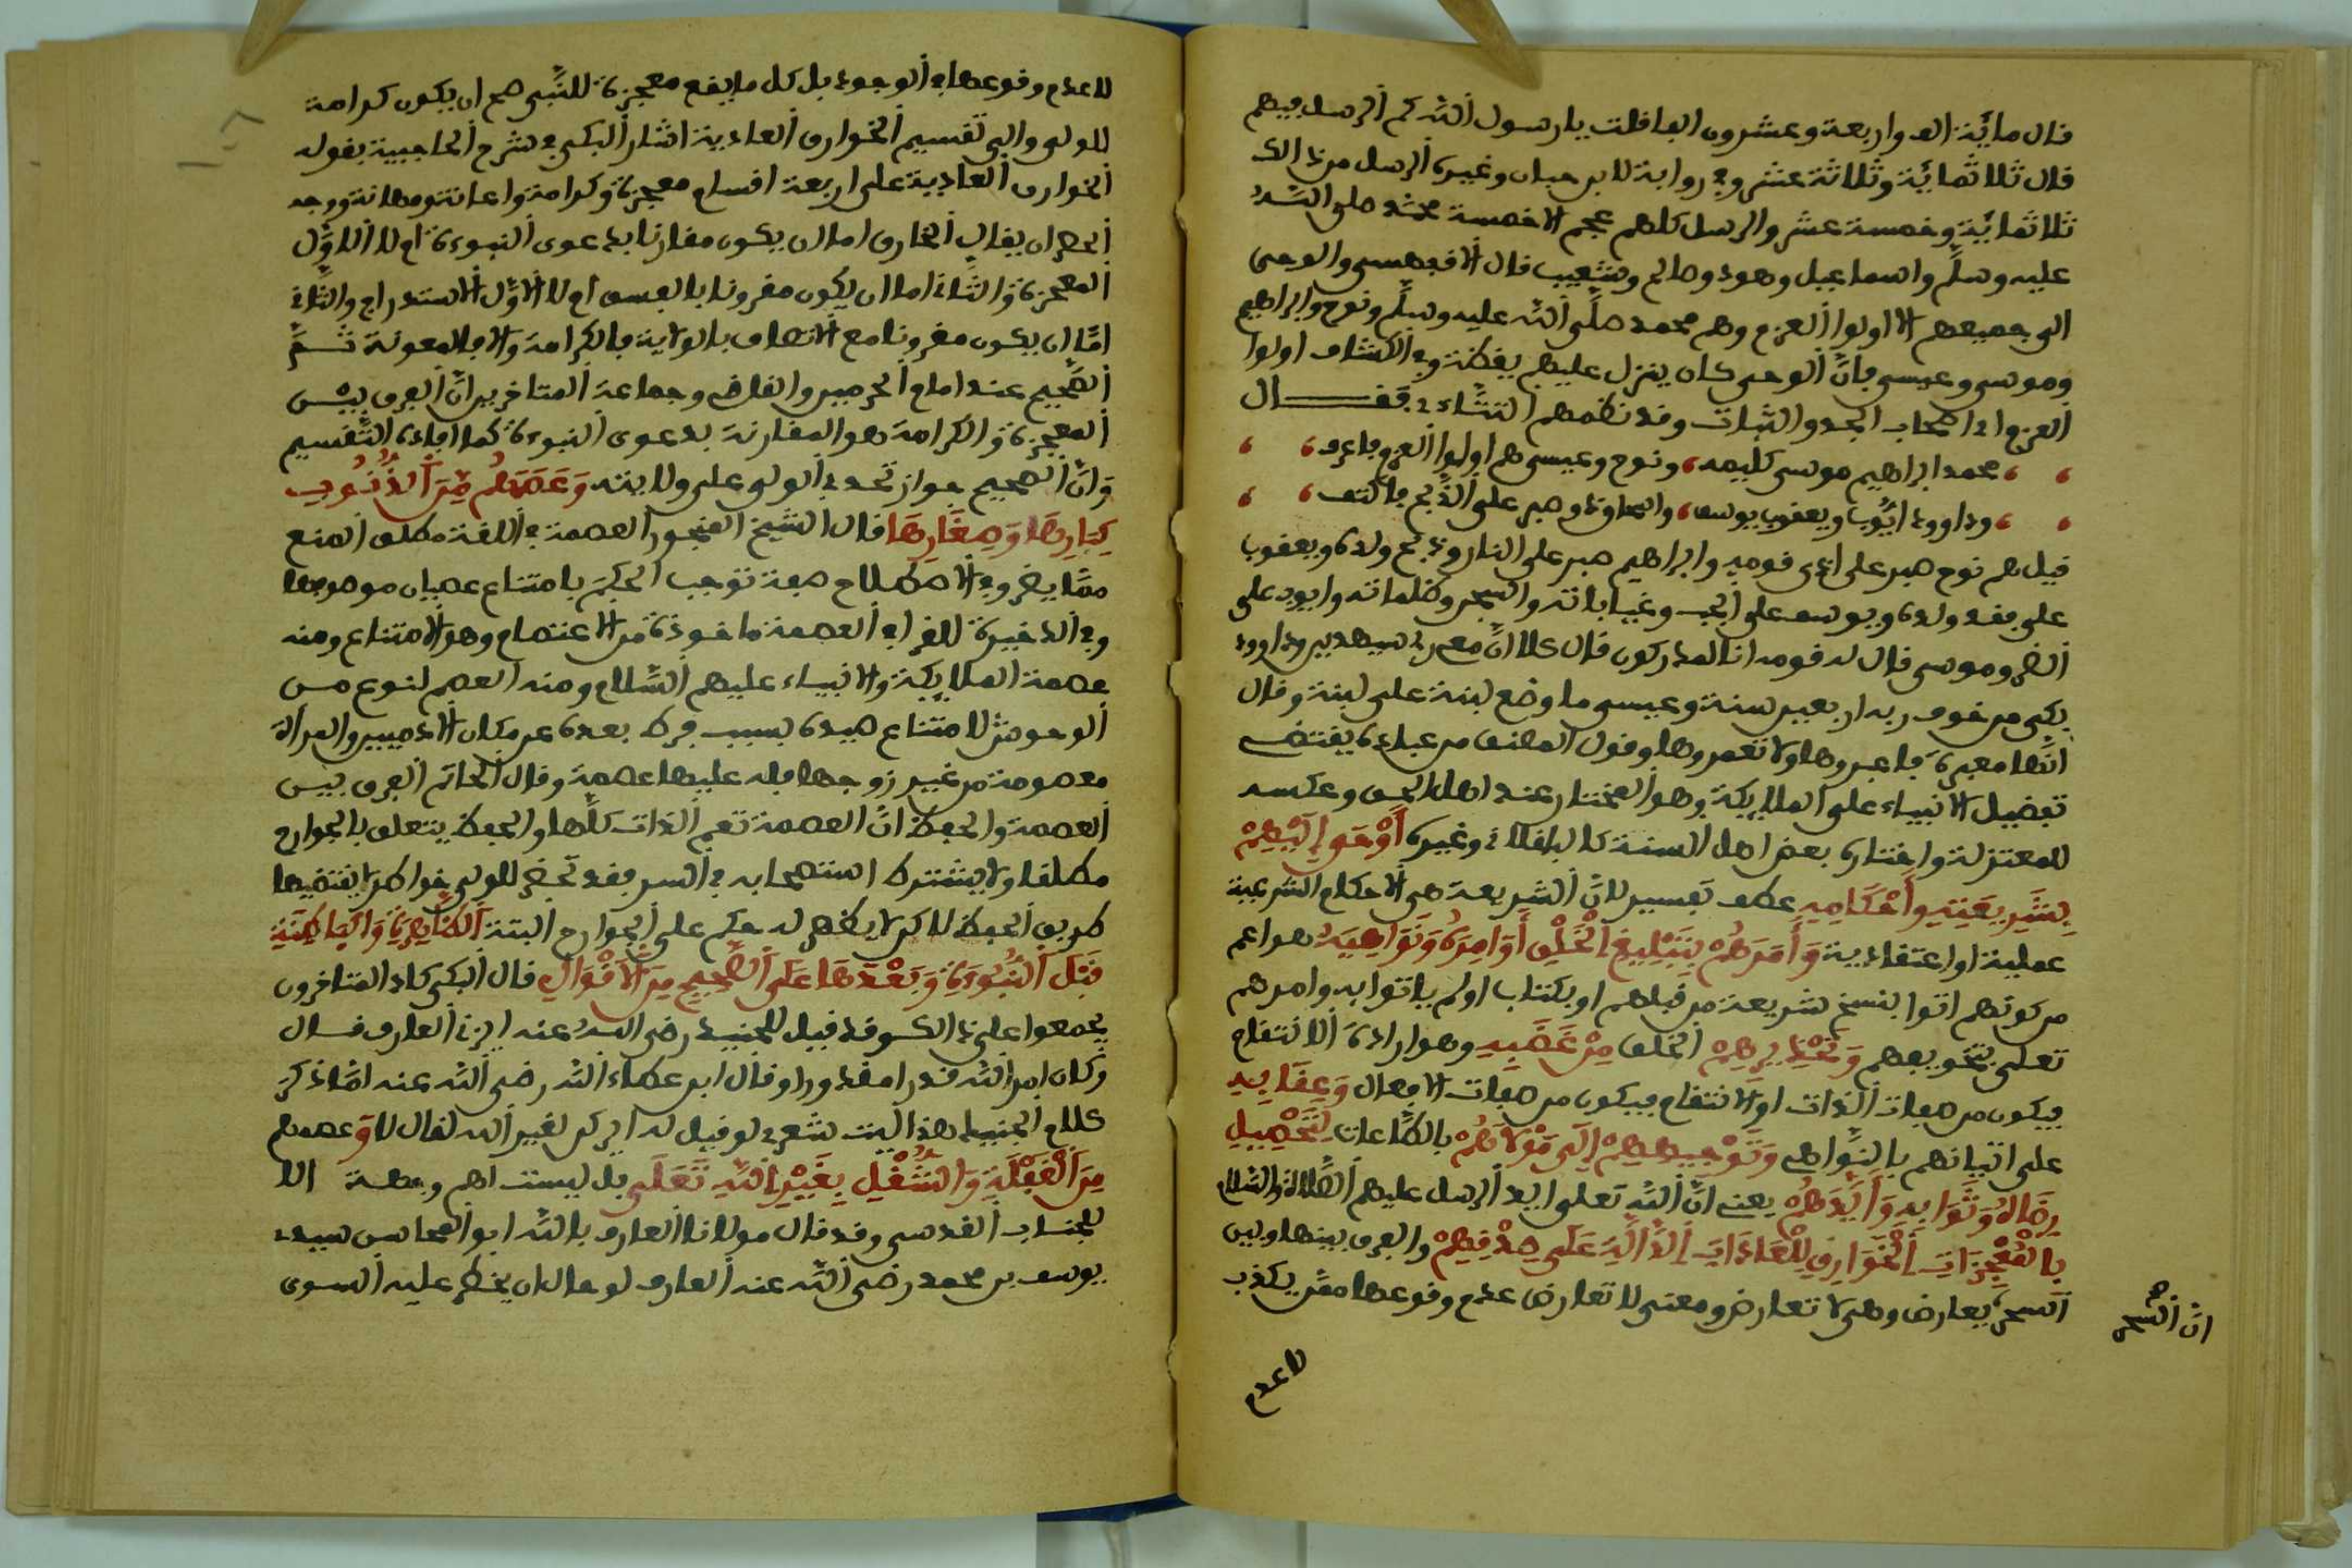 قال مائة الف واربعة وعشرون الفا قلت يا رسول الله كم الرسل فيهم
قال ثلاثمائة وثلاثة عشر وفي رواية لابن حبان وغيره الرسل من ذالك
ثلاثمائة وخمسة عشر والرسل كلهم عجم الا خمسة محمد صلى الله
عليه وسلم واسماعيل وهود وصالح وشعيب قال الاقفهسي والوحي
الى جميعهم الا اولوا العزم وهم محمد صلى الله عليه وسلم ونوح وابراهيم
وموسى وعيسى فان الوحي كان ينزل عليهم يقظة وفي الكشاف اولوا
العزم اي اصحاب الجد والثبات وقد نظمهم التتائي فقال
محمد ابراهيم موسى كليمه ونوح وعيسى هم اولوا العزم فاعرف
وداوود ايوب ويعقوب يوسف وصبر على الذبح فاكتف
قيل هم نوح صبر على اذى قومه وابراهيم صبر على النار وذبح ولده ويعقوب
على فقد ولده ويوسف على الجب وغياباته والسجن وظلماته وايوب على
الضر وموسى قال له قومه انا لمدركون قال كلا ان معي ربي سيهدين وداوود
بكى من خوف ربه اربعين سنة وعيسى ما وضع لبنة على لبنة وقال
انها معبرة فاعبروها ولا تعمروها وقول المصنف من عباده يقتضي
تفضيل الانبياء على الملايكة وهو المختار عند اهل الحق وعكسه
للمعتزلة واختاره بعض اهل السنة كالباقلاني وغيره أَوْحَى إِلَيْهِمْ
بِشَرِيعَتِهِ وَأَحْكَامِهِ عطف تفسير لان الشريعة هي الاحكام الشرعية
عملية او اعتقادية وَأَمَرَهُمْ بِتَبْلِيغِ الْخَلْقِ أَوَامِرَهُ وَنَوَاهِيَهُ هو اعم
من كونهم اتوا بنسخ شريعة من قبلهم او بكتاب او لم ياتوا به وامرهم
تعلى بتخويفهم وَتَحْذِيرِهِمْ الخلق مِنْ غَضَبِهِ وهو ارادة الانتقام
فيكون من صفات الذات او الانتقام فيكون من صفات الافعال وَعِقَابِهِ
على اتيانهم بالنواهي وَتَوْجِيهِهِمْ إِلَى مَوْلَاهُمْ بالطاعات لِتَحْصِيلِ
رِضَاهُ وَثَوَابِهِ وَأَيَّدَهُمْ يعني ان الله تعلى ايد الرسل عليهم الصلاة والسلام
بِالْمُعْجِزَاتِ الْخَوَارِقِ لِلْعَادَاتِ الدَّالَّةِ عَلَى صِدْقِهِمْ والفرق بينها وبين
السحر يعارض وهي لا تعارض ومعنى لا تعارض عدم وقوعها ممن يكذب
ان السحر صح
لا عدم
لا عدم وقوعها في الوجود بل كل ما يقع معجزة للنبي صح ان يكون كرامة
للولي والى تقسيم الخوارق العادية اشار البكي في شرح الحاجبية بقوله
الخوارق العادية على اربعة اقسام معجزة وكرامة واعانة ومهانة ووجه
الحصر ان يقال الخارق اما ان يكون مقارنا بدعوى النبوءة ام لا الاول
المعجزة والثاني اما ان يكون مقرونا بالفسق ام لا الاول الاستدراج والثاني
اما ان يكون مقرونا مع الاتصاف بالولاية فالكرامة والا فالمعونة ثم
الصحيح عند امام الحرمين والقاضي وجماعة المتاخرين ان الفرق بين
المعجزة والكرامة هو المقارنة بدعوى النبوءة كما افاده التقسيم
وان الصحيح جواز تحدي الولي على ولايته وَعَصَمَهُمْ مِنَ الذُّنُوبِ
كِبَارِهَا وَصِغَارِهَا قال الشيخ المنجور العصمة في اللغة مطلق المنع
مما يضر وفي الاصطلاح صفة توجب الحكم بامتناع عصيان موصوفها
وفي الذخيرة للقرافي العصمة ماخوذة من الاعتصام وهو الامتناع ومنه
عصمة الملايكة والانبياء عليهم السلام ومنه العصم لنوع من
الوحوش لامتناع صيده بسبب فرط بعده عن مكان الادميين والمرأة
معصومة من غير زوجها فله عليها عصمة وقال الحاتمي الفرق بين
العصمة والحفظ ان العصمة تعم الذات كلها والحفظ يتعلق بالجوارح
مطلقا ولا يشترط استصحابه في السر فقد تخطر للولي خواطر لا يقتضيها
طريق الحفظ لاكن لا يظهر له حكم على الجوارح البتة الظَّاهِرَةِ وَالْبَاطِنَةِ
قَبْلَ النُّبُوءَةِ وَبَعْدَهَا عَلَى الصَّحِيحِ مِنَ الْأَقْوَالِ قال البكي كاد المتاخرون
يجمعوا على ذالك وقد قيل للجنيد رضي الله عنه ايزني العارف قال
وكان امر الله قدرا مقدورا وقال ابن عطاء الله رضي الله عنه لما ذكر
كلام الجنيد هذا ليت شعري لو قيل له ايركن لغير الله لقال لا وَعصمهم
مِنَ الْغَفْلَةِ وَالشُّغْلِ بِغَيْرِ اللَّهِ تَعَلَى بل ليست لهم وجهة الا
للجناب القدسي وقد قال مولانا العارف بالله ابو المحاسن سيدي
يوسف بن محمد رضي الله عنه العارف لو حاول ان يخطر عليه السوى